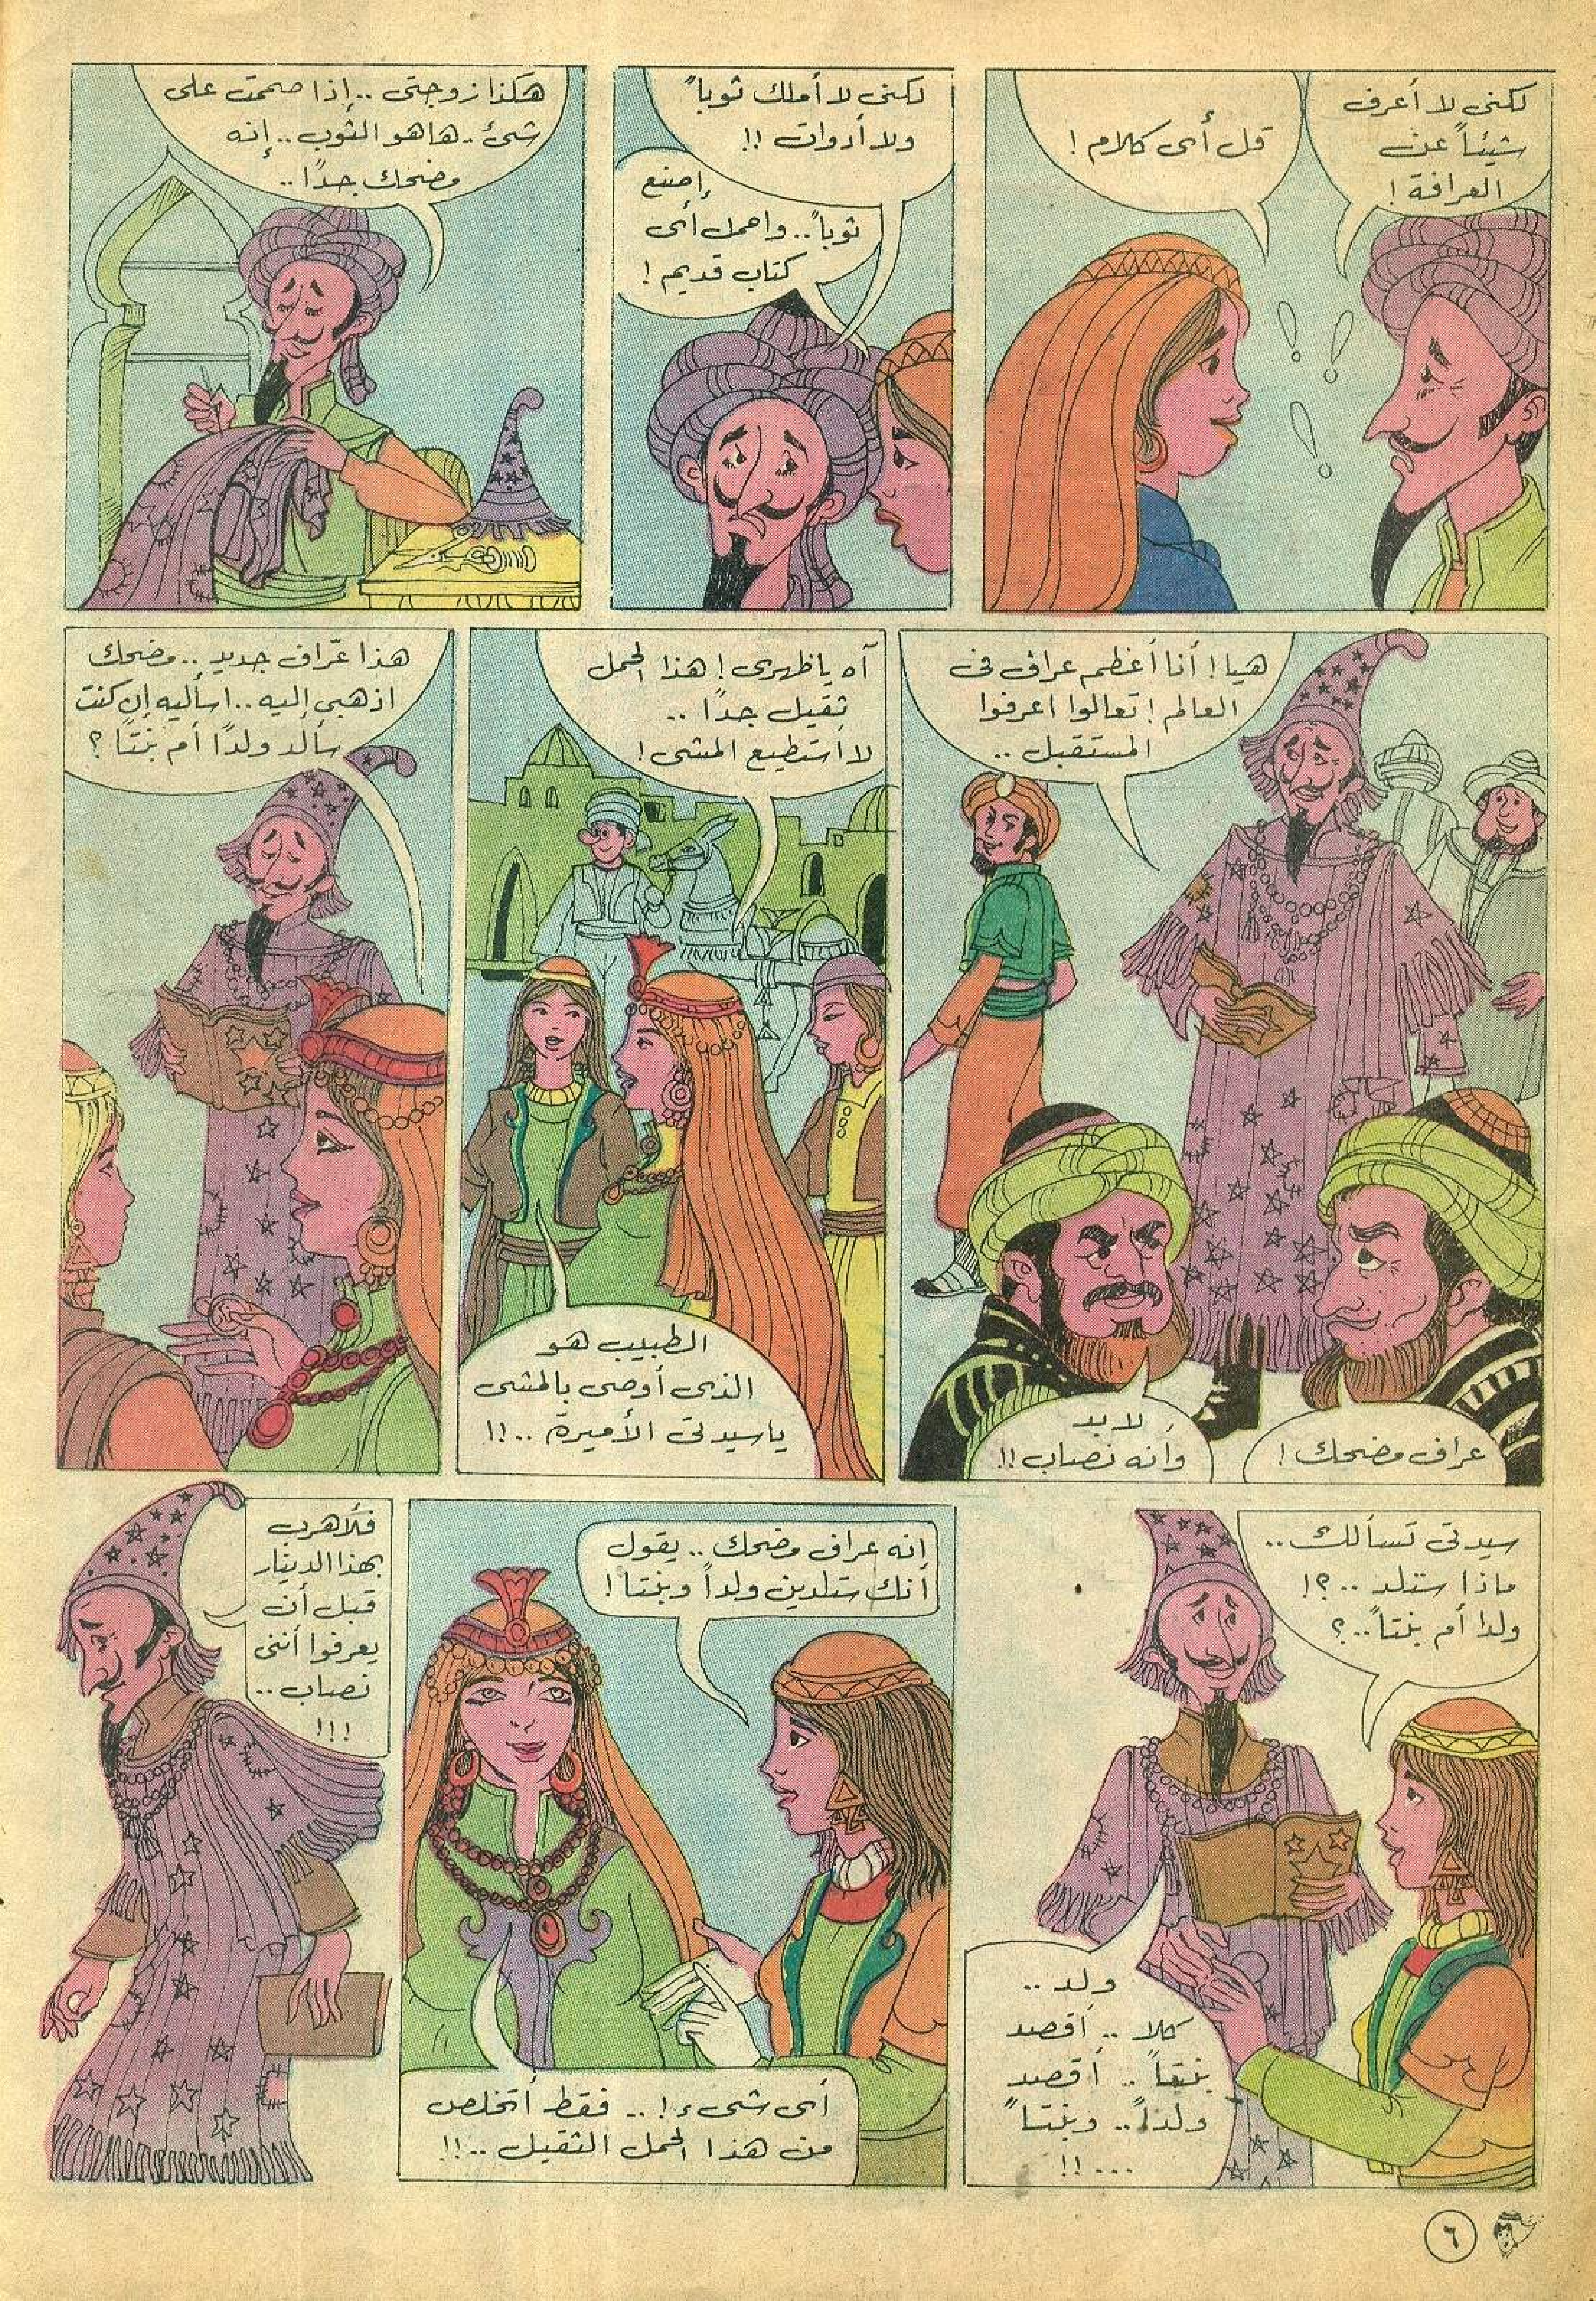 لكنى لا أعرف
شيئاً عن
العرافة !
قل أى كلام !
لكنى لا أملك ثوباً
ولا أدوات !!
إصنع
ثوباً .. واحمل أى
كتاب قديم !
هكذا زوجتى .. إذا صممت على
شئ .. ها هو الثوب .. إنه
مضحك جداً ..
هيا ! أنا أعظم عراف فى
العالم ! تعالوا اعرفوا
المستقبل ..
عراف مضحك !
لابد
وأنه نصاب !!
آه ياظهرى ! هذا الحمل
ثقيل جداً ..
لا أستطيع المشى !
الطبيب هو
الذى أوصى بالمشى
ياسيدتى الأميرة .. !!
هذا عرّاف جديد .. مضحك
اذهبى إليه .. اسأليه إن كنت
سألد ولداً أم بنتاً ؟
سيدتى تسألك ..
ماذا ستلد .. ؟!
ولدا أم بنتاً .. ؟
ولد ..
كلا .. أقصد
بنتاً .. أقصد
ولداً .. وبنتاً
... !!
انه عراف مضحك .. يقول
أنك ستلدين ولداً وبنتاً !
أى شىء ! .. فقط أتخلص
من هذا الحمل الثقيل .. !!
فلأهرب
بهذا الدينار
قبل أن
يعرفوا أننى
نصاب ..
!!!
٦